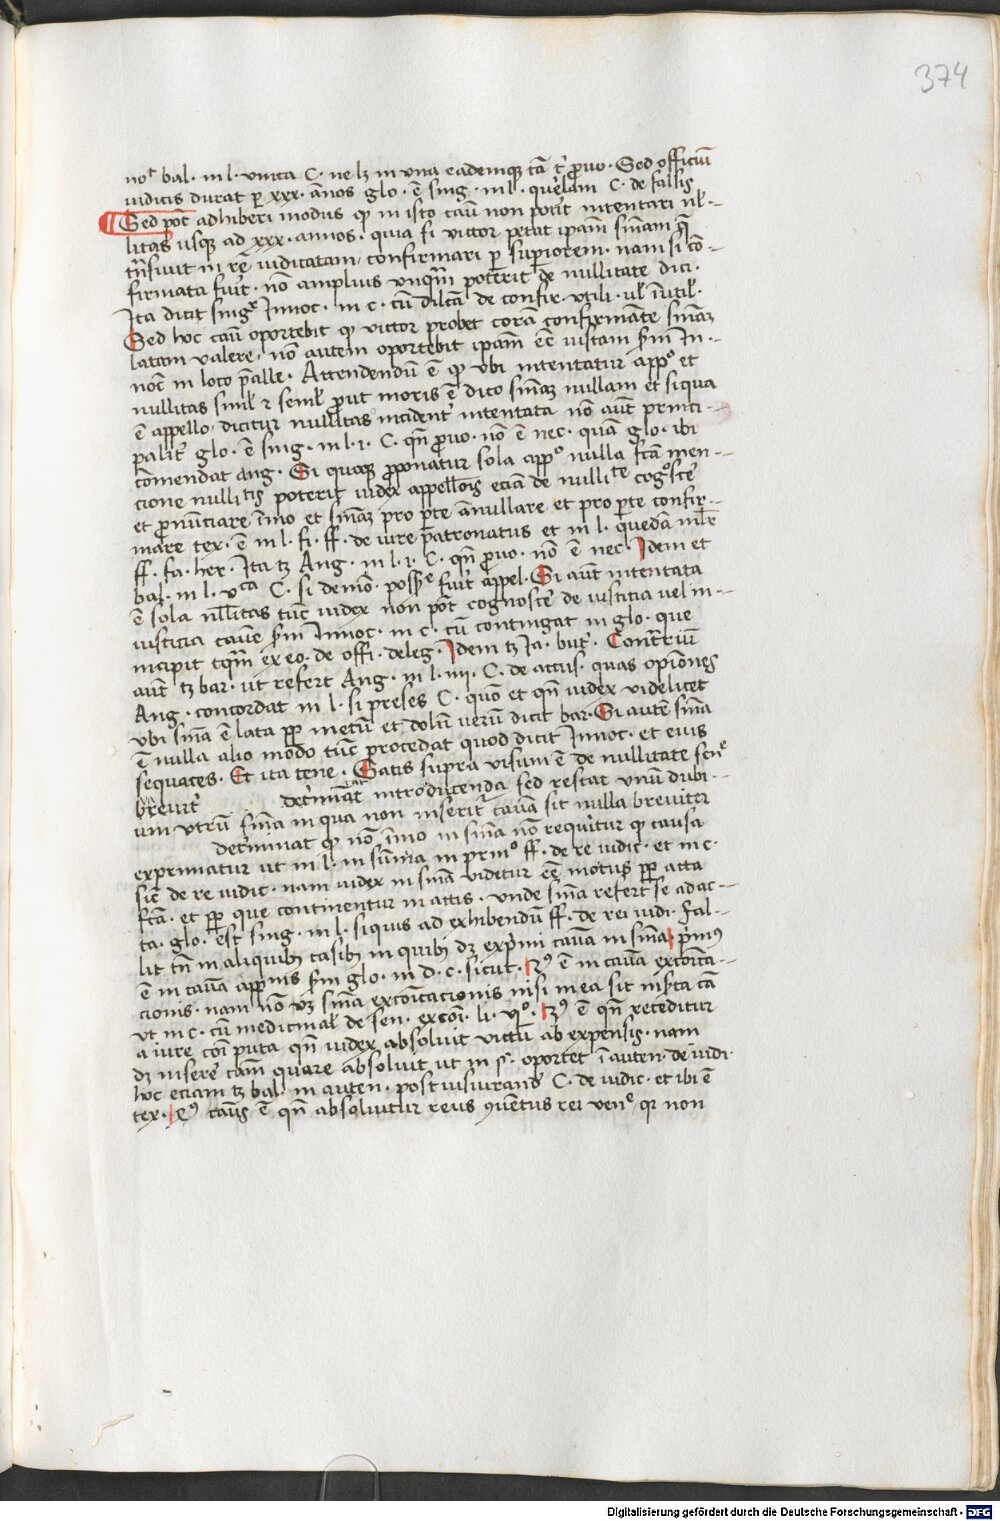 374
noͭ bal. in l. vnica C. ne lꝫ in vna eademqꝫ cā t͛ ꝓuo. Sed officiū
iudicis durat ꝑ xxx. ānos glo. ē sing. in l. querelam C. de falsis
¶ Sed pōt adhiberi modus qꝫ in isto casu non potit intentari nl̄-
litas usqꝫ ad xxx. annos. quia si victor petat ipam̄ sm̄am q̄
tn̄siuit in rē iudicatam confirmari ꝑ superiorem. nam si cō-
firmata fuit. nō amplius vnqm̄ poterit de nullitate dici.
Ita dicit singͬ Innoc. in c. cū dilcā de confir. vtili. ul̄ īutil̄.
Sed hoc casu oportebit qꝫ victor probet corā confirmāte sm̄aꝫ
latam valere, nō autem oportebit ipam̄ eē iustam scd̄m In-
noc̄ in loco p̄alle. Attendendū ē qꝫ vbi intentatur appͦ et
nullitas simͥl ⁊ semel ꝓut moris ē dico sm̄aꝫ nullam et si qua
ē appello, dicitur nullitas incident̄ intentata nō aūt princi-
palit̄ glo. ē sing. in l. i. C. qn̄ ꝓuo. nō ē nec. quā glo. ibi
cōmendat ang. Si quaqꝫ ꝓponatur sola appͦ nulla fc̄a men-
cione nullitis poterit iudex appellōis eciā de nulliᵗᵉ cogͦsce͛
et pronūciare īmo et sm̄aꝫ pro ꝑte ānullare et pro ꝑte confir-
mare tex. ē in l. fi. ff. de iure patronatus et in l. quedā ml̄r
ff. fa. her. Ita tꝫ Ang. in l. i. C. qn̄ ꝓuo. nō ē nec. Idem et
bal. in l. vᶜᵃ C. si de mo. possͤ fuit appel. Si aūt intentata
ē sola nll̄itas tūc iudex non pōt cognosce͛ de iusticia uel in-
iusticia cause scd̄m Innoc. in c. cū contingat in glo. que
incipit tqm̄ ex eo. de offi. deleg. Idem tꝫ Ia. but. Contr̄iū
aūt tꝫ bar. ut refert Ang. in l. iii. C. de accus. quas opiōnes
Ang. concordat in l. si preses C. quō et qn̄ iudex videlicet
vbi sm̄a ē lata ꝓp metū et dolū verū dicit bar. Si autē sm̄a
ē nulla alio modo tūc procedat quod dicit Innoc. et eius
sequaces. Et ita tene. Satis supra visum ē de nullitate senͤ
breuit͛ det͛minat introducenda sed restat vnū dubi-
um vtrū sm̄a in qua non inserit̄ causa sit nulla breuiter
determinat qꝫ nō īmo in sm̄a nō requiritur qꝫ causa
exprimatur ut in l. in sum̄a in prinͦ ff. de re iudic. et in c.
sic̄ de re iudic. nam iudex in sm̄a videtur eē motus ꝓp acta
fc̄a. et ꝓp que continentur in actis. vnde sm̄a refert se ad ac-
ta. glo. est sing. in l. si quis ad exhibendū ff. de rei iudi. Fal-
lit tn̄ in aliquibꝫ casibꝫ in quibꝫ dꝫ exp̄imi causa in sm̄a p̄imꝰ
ē in causa app̄nis scd̄m glo. in d. c. sicut. 2ꝰ ē in causa excōīca-
cionis. nam nō vꝫ sm̄a excōicacionis nisi in ea sit inserta cā
ut in c. cū medicinal̄ de sen. excōi. li. viͦ. 3ꝰ ē qn̄ receditur
a iure cōi puta qn̄ iudex absoluit victū ab expensis. nam
dꝫ insere͛ cām̄ quare absoluit ut in §. oportet ī auten. de iudi.
hoc eciam tꝫ bal. in auten. post iusiurand̄ C. de iudic. et ibi ē
tex. 4ꝰ casus ē qn̄ absoluitur reus ꝯuentus rei venͤ qꝛ non
Digitalisierung gefördert durch die Deutsche Forschungsgemeinschaft - DFG